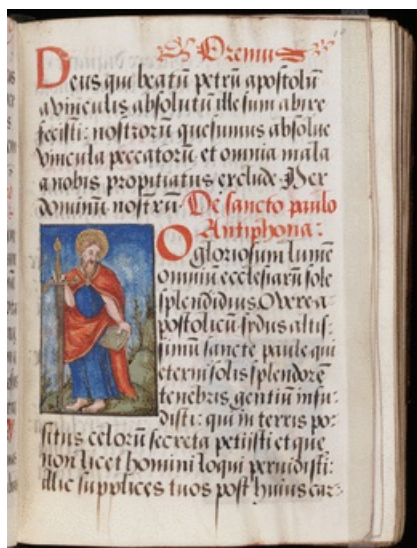 Oremus
Deus qui beatū petrū apostolū
a vinculis absolutū illesum abire
fecisti: nostrorū quesumus absolue
vincula peccatorū et omnia mala
a nobis propitiatus exclude. Per
dominū nostrū. De sancto paulo
Antiphona:
O gloriosum lumē
omniū ecclesiarū sole
splendidius. O vere a-
postolicū sydus altis-
simū sancte paule qui
eterni solis splendorē
tenebris gentiū infu-
disti: qui in terris po-
situs celorū secreta petisti et que
non licet homini loqui peruidisti:
illic supplices tuos post huius car-